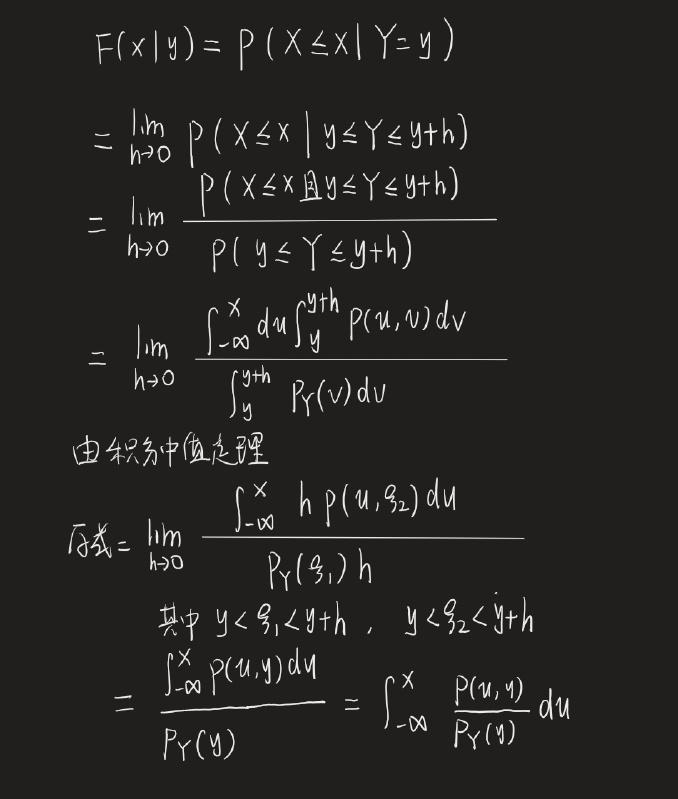 F(x|y) = P(X≤x|Y=y)
= lim h→0 P(X≤x | y≤Y≤y+h)
= lim h→0 P(X≤x且y≤Y≤y+h) / P(y≤Y≤y+h)
= lim h→0 ∫_{-∞}^{x} du ∫_{y}^{y+h} p(u,v) dv / ∫_{y}^{y+h} P_Y(v) dv
由积分中值定理
原式 = lim h→0 ∫_{-∞}^{x} h p(u,ξ₂) du / P_Y(ξ₁) h
其中 y<ξ₁<y+h , y<ξ₂<y+h
= ∫_{-∞}^{x} p(u,y) du / P_Y(y) = ∫_{-∞}^{x} p(u,y)/P_Y(y) du